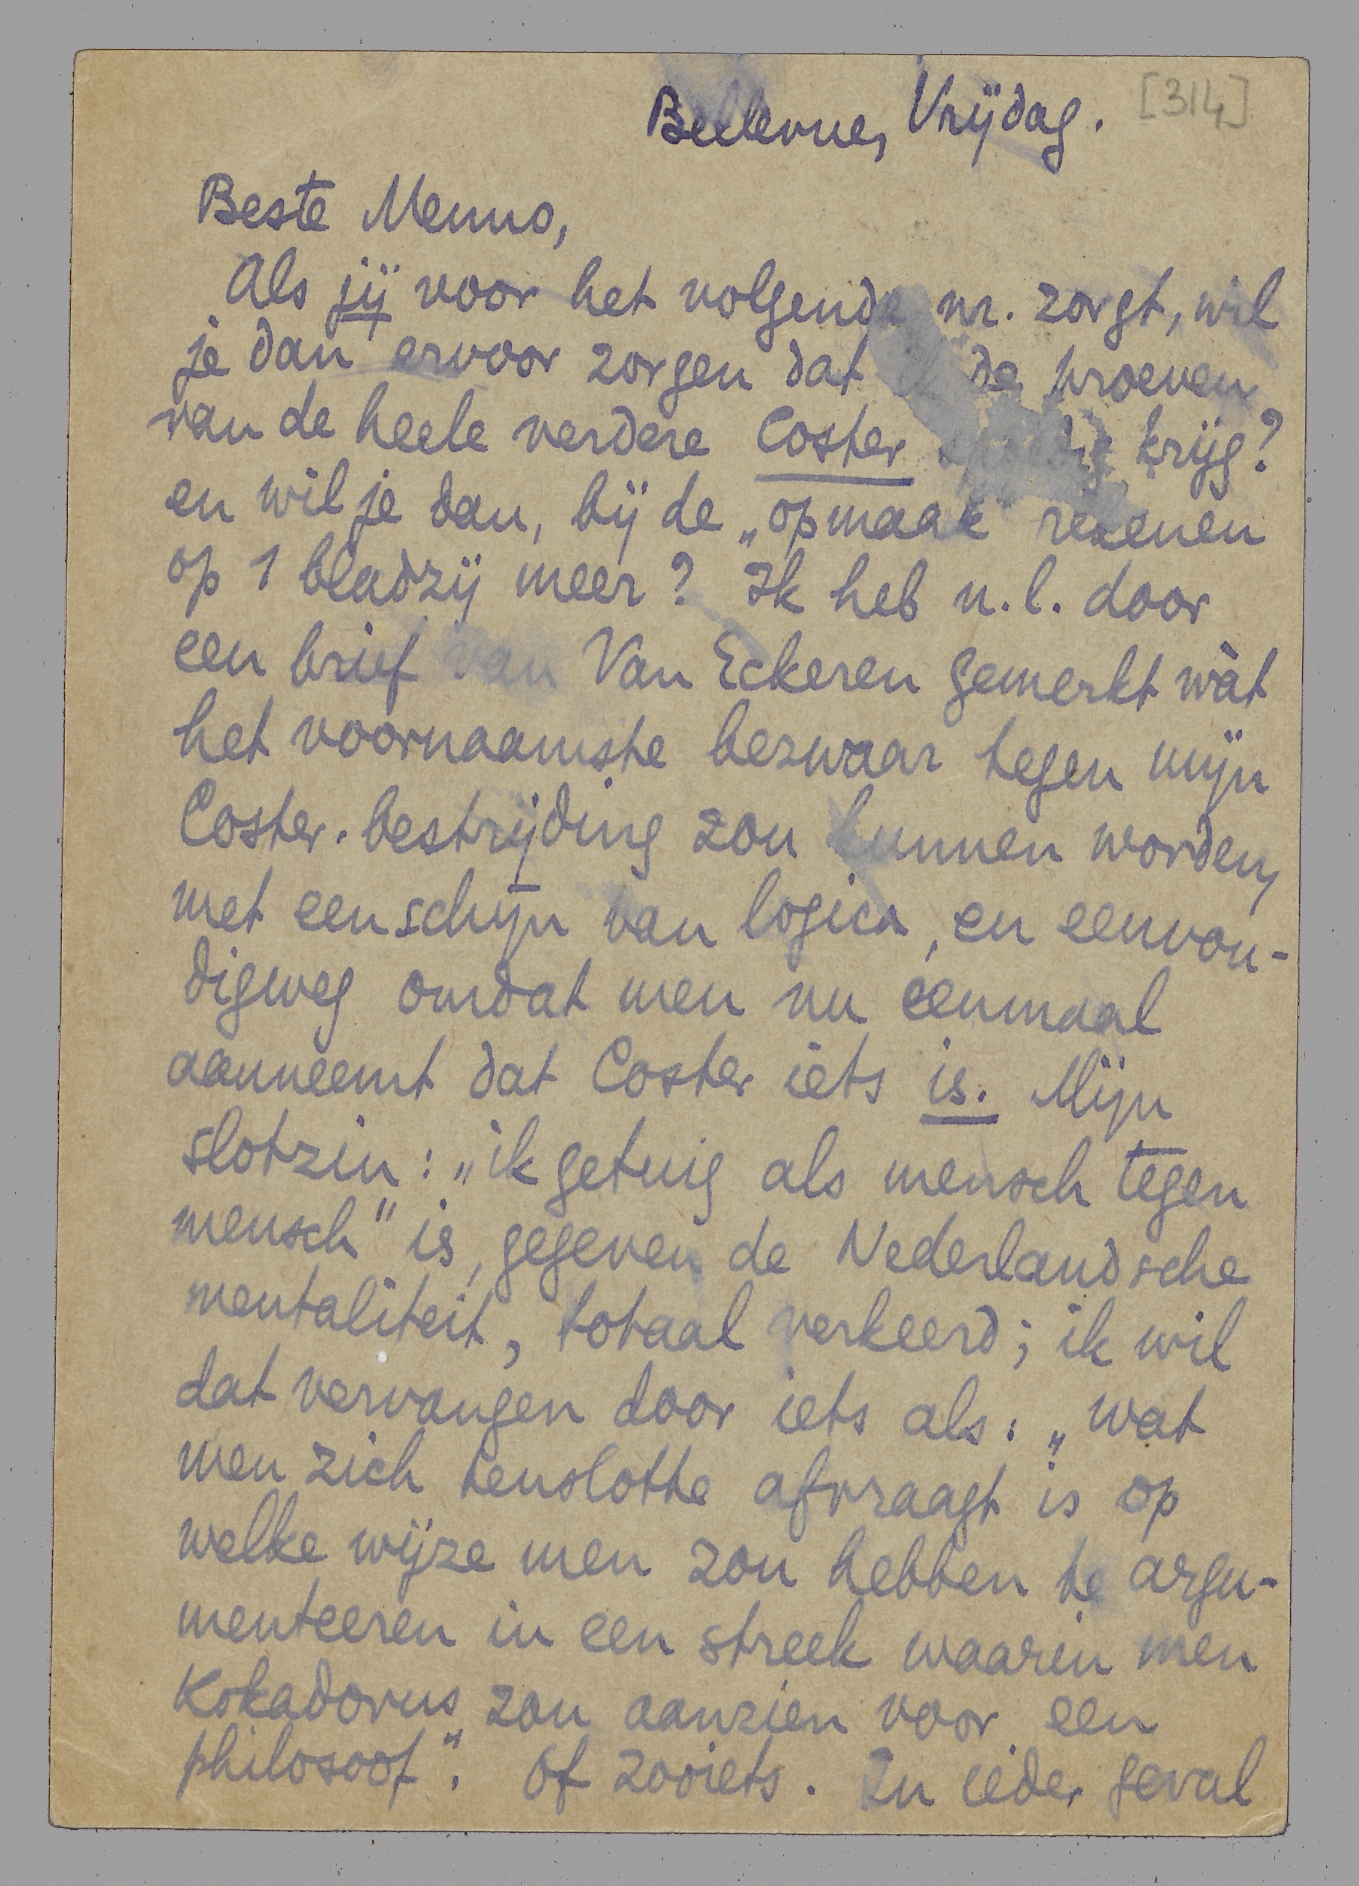 Bellevue, Vrijdag. [314]
Beste Menno,
Als jij voor het volgende nr. zorgt, wil
je dan ervoor zorgen dat ik de proeven
van de heele verdere Coster spoedig krijg?
en wil je dan, bij de „opmaak" rekenen
op 1 bladzij meer? Ik heb n.l. door
een brief van Van Eckeren gemerkt wàt
het voornaamste bezwaar tegen mijn
Coster-bestrijding zou kunnen worden,
met een schijn van logica, en eenvou-
digweg omdat men nu eenmaal
aanneemt dat Coster iets is. Mijn
slotzin: „ik getuig als mensch tegen
mensch" is, gegeven de Nederlandsche
mentaliteit, totaal verkeerd; ik wil
dat vervangen door iets als: „wat
men zich tenslotte afvraagt is op
welke wijze men zou hebben te argu-
menteeren in een streek waarin men
Kokadorus zou aanzien voor een
philosoof". Of zooiets. In ieder geval